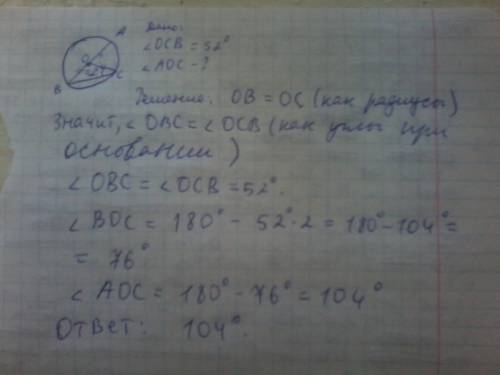 A
Дано:
O
∠OCB = 52°
C
∠AOC - ?
B
Решение: OB = OC (как радиусы)
Значит, ∠OBC = ∠OCB (как углы при
основании)
∠OBC = ∠OCB = 52°.
∠BOC = 180° - 52°·2 = 180° - 104° =
= 76°
∠AOC = 180° - 76° = 104°
Ответ: 104°.